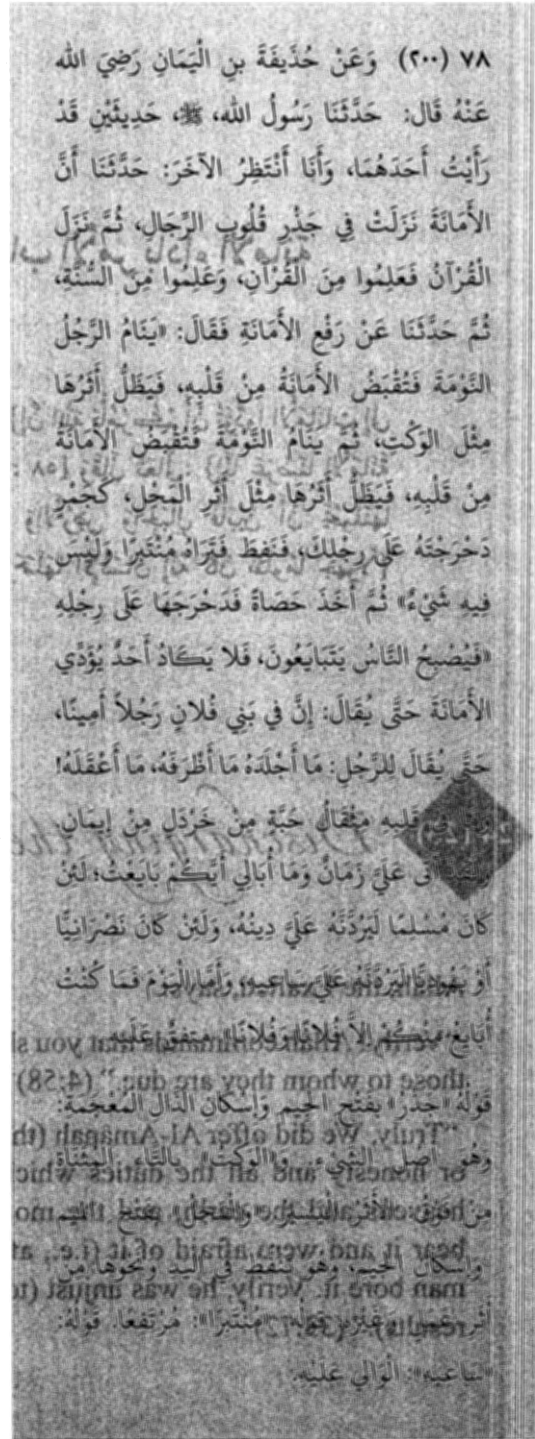 ٧٨ (٢٠٠) وَعَنْ حُذَيفَةَ بنِ الْيَمَانِ رَضِيَ الله
عَنْهُ قَال: حَدَّثَنَا رَسُولُ الله، ﷺ، حَدِيثَيْنِ قَدْ
رَأَيْتُ أَحَدَهُمَا، وَأَنَا أَنْتَظِرُ الآخَرَ: حَدَّثَنَا أَنَّ
الأَمَانَةَ نَزَلَتْ فِي جَذْرِ قُلُوبِ الرِّجَالِ، ثُمَّ نَزَلَ
الْقُرْآنُ فَعَلِمُوا مِنَ الْقُرْآنِ، وَعَلِمُوا مِنَ السُّنَّةِ،
ثُمَّ حَدَّثَنَا عَنْ رَفْعِ الأَمَانَةِ فَقَالَ: «يَنَامُ الرَّجُلُ
النَّوْمَةَ فَتُقْبَضُ الأَمَانَةُ مِنْ قَلْبِهِ، فَيَظَلُّ أَثَرُهَا
مِثْلَ الوَكْتِ، ثُمَّ يَنَامُ النَّوْمَةَ فَتُقْبَضُ الأَمَانَةُ
مِنْ قَلْبِهِ، فَيَظَلُّ أَثَرُهَا مِثْلَ أَثَرِ الْمَجْلِ، كَجَمْرٍ
دَحْرَجْتَهُ عَلَى رِجْلِكَ، فَنَفِطَ فَتَرَاهُ مُنْتَبِرًا وَلَيْسَ
فِيهِ شَيْءٌ» ثُمَّ أَخَذَ حَصَاةً فَدَحْرَجَهَا عَلَى رِجْلِهِ
«فَيُصْبِحُ النَّاسُ يَتَبَايَعُونَ، فَلا يَكَادُ أَحَدٌ يُؤَدِّي
الأَمَانَةَ حَتَّى يُقَالَ: إِنَّ فِي بَنِي فُلانٍ رَجُلاً أَمِينًا،
حَتَّى يُقَالَ لِلرَّجُلِ: مَا أَجْلَدَهُ مَا أَظْرَفَهُ، مَا أَعْقَلَهُ!
قَلْبِهِ مِثْقَالُ حَبَّةٍ مِنْ خَرْدَلٍ مِنْ إِيمَانٍ.
أَتَى عَلَيَّ زَمَانٌ وَمَا أُبَالِي أَيَّكُمْ بَايَعْتُ؛ لَئِنْ
كَانَ مُسْلِمًا لَيَرُدَّنَّهُ عَلَيَّ دِينُهُ، وَلَئِنْ كَانَ نَصْرَانِيًّا
أَوْ يَهُودِيًّا لَيَرُدَّنَّهُ عَلَيَّ سَاعِيهِ، وَأَمَّا الْيَوْمَ فَمَا كُنْتُ
أُبَايِعُ مِنْكُمْ إِلاَّ فُلانًا وَفُلانًا» متفقٌ عَلَيهِ.
قَوْلُهُ «جَذْرُ» بفَتْحِ الْجِيمِ وَإِسْكَانِ الذَّالِ الْمُعْجَمَةِ:
وهُوَ أَصْلُ الشَّيْءِ و«الْوَكْتُ» بالتَّاءِ الْمُثَنَّاةِ
مِنْ فَوْقُ: الأَثَرُ الْيَسِيرُ. «وَالْمَجْلُ» بفَتْحِ الْمِيم
وإِسْكَانِ الْجِيمِ، وهُوَ تَنَفُّطٌ في الْيَدِ ونَحْوِهَا مِنْ
أَثَرِ قَوْلُهُ: «مُنْتَبِرًا»: مُرْتَفِعًا. قَوْلُهُ:
«سَاعِيهِ»: الْوَالِي عَلَيْهِ.